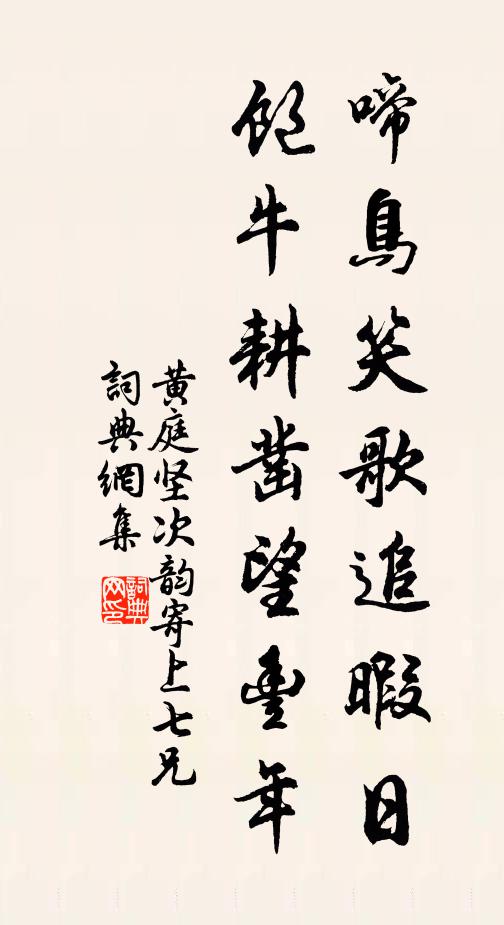 啼鳥笑歌追暇日
飽牛耕鑿望豐年
黄庭坚次韵寄上七兄
詞典網集
詞典网印